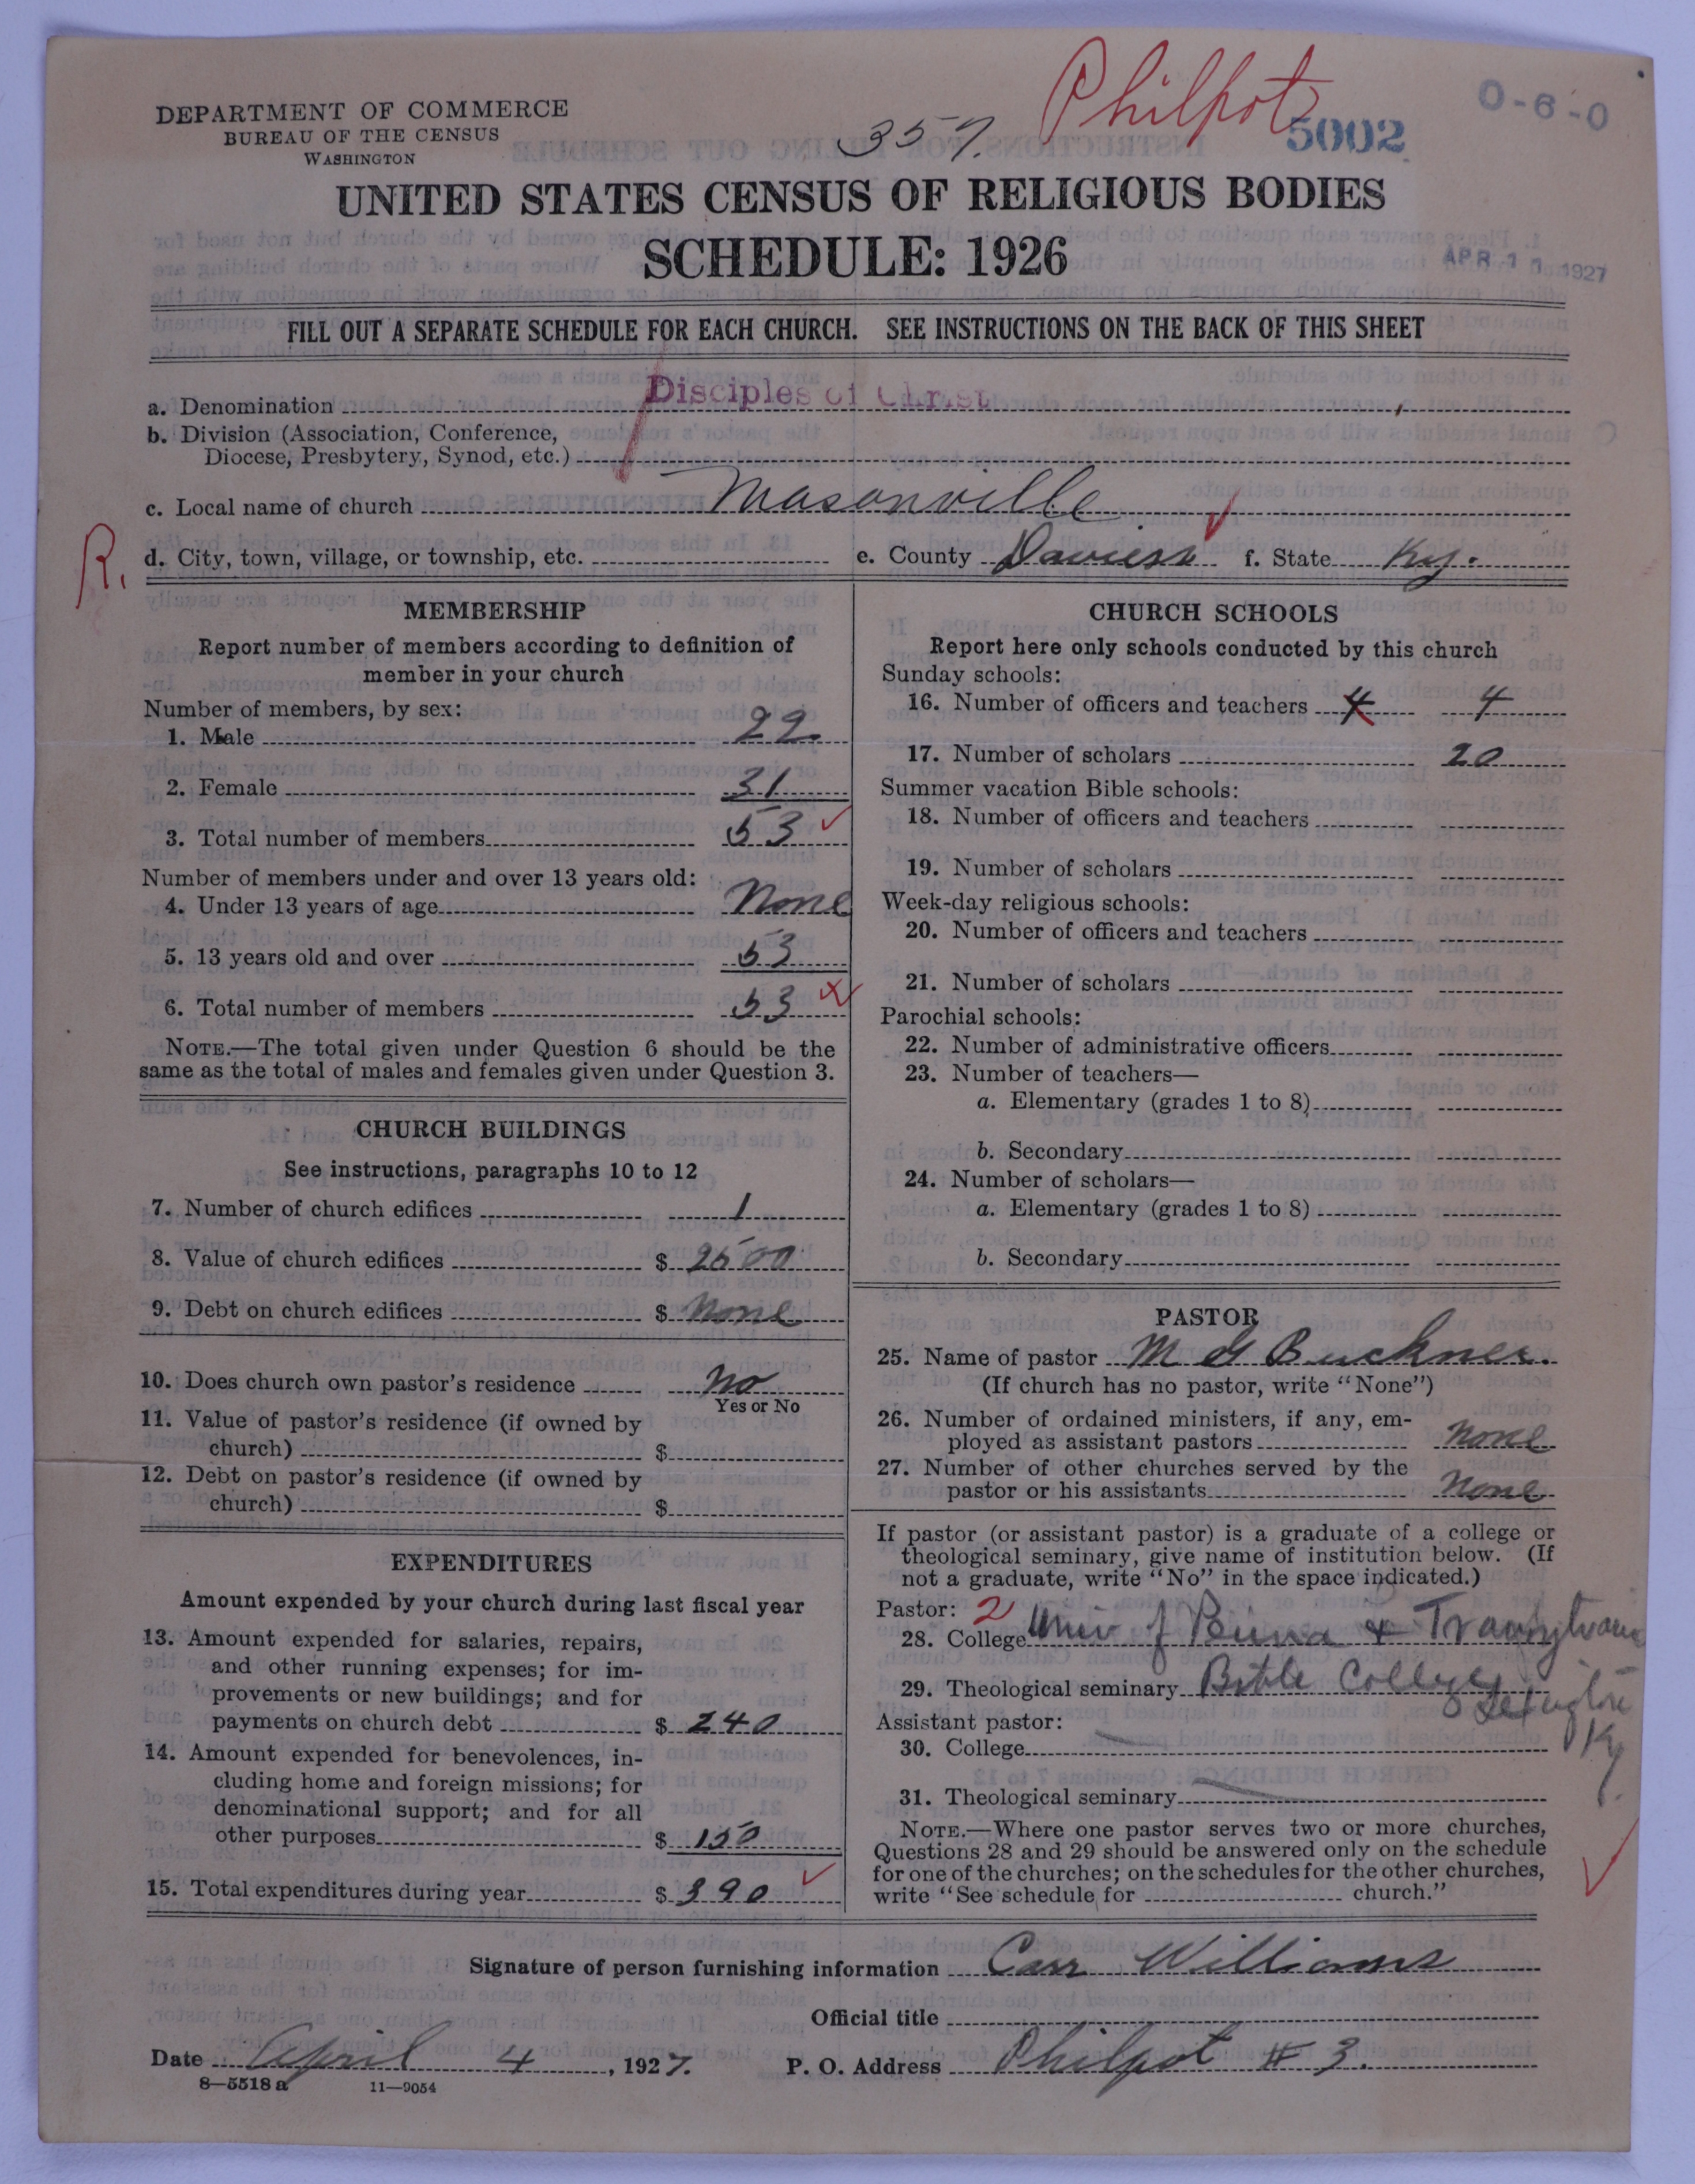 Philpot
0-6-0
DEPARTMENT OF COMMERCE
BUREAU OF THE CENSUS
WASHINGTON
357.
5002
UNITED STATES CENSUS OF RELIGIOUS BODIES
SCHEDULE: 1926
APR 1 1927
FILL OUT A SEPARATE SCHEDULE FOR EACH CHURCH. SEE INSTRUCTIONS ON THE BACK OF THIS SHEET
a. Denomination Disciples of Christ
b. Division (Association, Conference,
Diocese, Presbytery, Synod, etc.)
c. Local name of church Masonville
R.
d. City, town, village, or township, etc. e. County Daviess f. State Ky.
MEMBERSHIP
Report number of members according to definition of
member in your church
Number of members, by sex:
1. Male 22
2. Female 31
3. Total number of members 53
Number of members under and over 13 years old:
4. Under 13 years of age None
5. 13 years old and over 53
6. Total number of members 53
NOTE.—The total given under Question 6 should be the
same as the total of males and females given under Question 3.
CHURCH BUILDINGS
See instructions, paragraphs 10 to 12
7. Number of church edifices 1
8. Value of church edifices $ 2500
9. Debt on church edifices $ None
10. Does church own pastor's residence No
Yes or No
11. Value of pastor's residence (if owned by
church) $
12. Debt on pastor's residence (if owned by
church) $
EXPENDITURES
Amount expended by your church during last fiscal year
13. Amount expended for salaries, repairs,
and other running expenses; for im-
provements or new buildings; and for
payments on church debt $ 240
14. Amount expended for benevolences, in-
cluding home and foreign missions; for
denominational support; and for all
other purposes $ 150
15. Total expenditures during year $ 390
CHURCH SCHOOLS
Report here only schools conducted by this church
Sunday schools:
16. Number of officers and teachers 4 4
17. Number of scholars 20
Summer vacation Bible schools:
18. Number of officers and teachers
19. Number of scholars
Week-day religious schools:
20. Number of officers and teachers
21. Number of scholars
Parochial schools:
22. Number of administrative officers
23. Number of teachers—
a. Elementary (grades 1 to 8)
b. Secondary
24. Number of scholars—
a. Elementary (grades 1 to 8)
b. Secondary
PASTOR
25. Name of pastor M G Buckner.
(If church has no pastor, write "None")
26. Number of ordained ministers, if any, em-
ployed as assistant pastors None
27. Number of other churches served by the
pastor or his assistants None
If pastor (or assistant pastor) is a graduate of a college or
theological seminary, give name of institution below. (If
not a graduate, write "No" in the space indicated.)
Pastor: 2
28. College Univ of & Transylvania
29. Theological seminary Bible College
Lexington
Ky.
Assistant pastor:
30. College
31. Theological seminary
NOTE.—Where one pastor serves two or more churches,
Questions 28 and 29 should be answered only on the schedule
for one of the churches; on the schedules for the other churches,
write "See schedule for church."
Signature of person furnishing information Carr Williams
Official title
Date April 4, 1927. P. O. Address Philpot # 3.
8—5518 a 11—9054